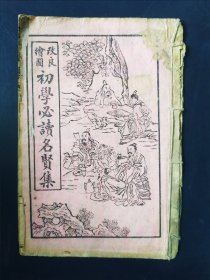 改良
繪圖
初學必讀名賢集